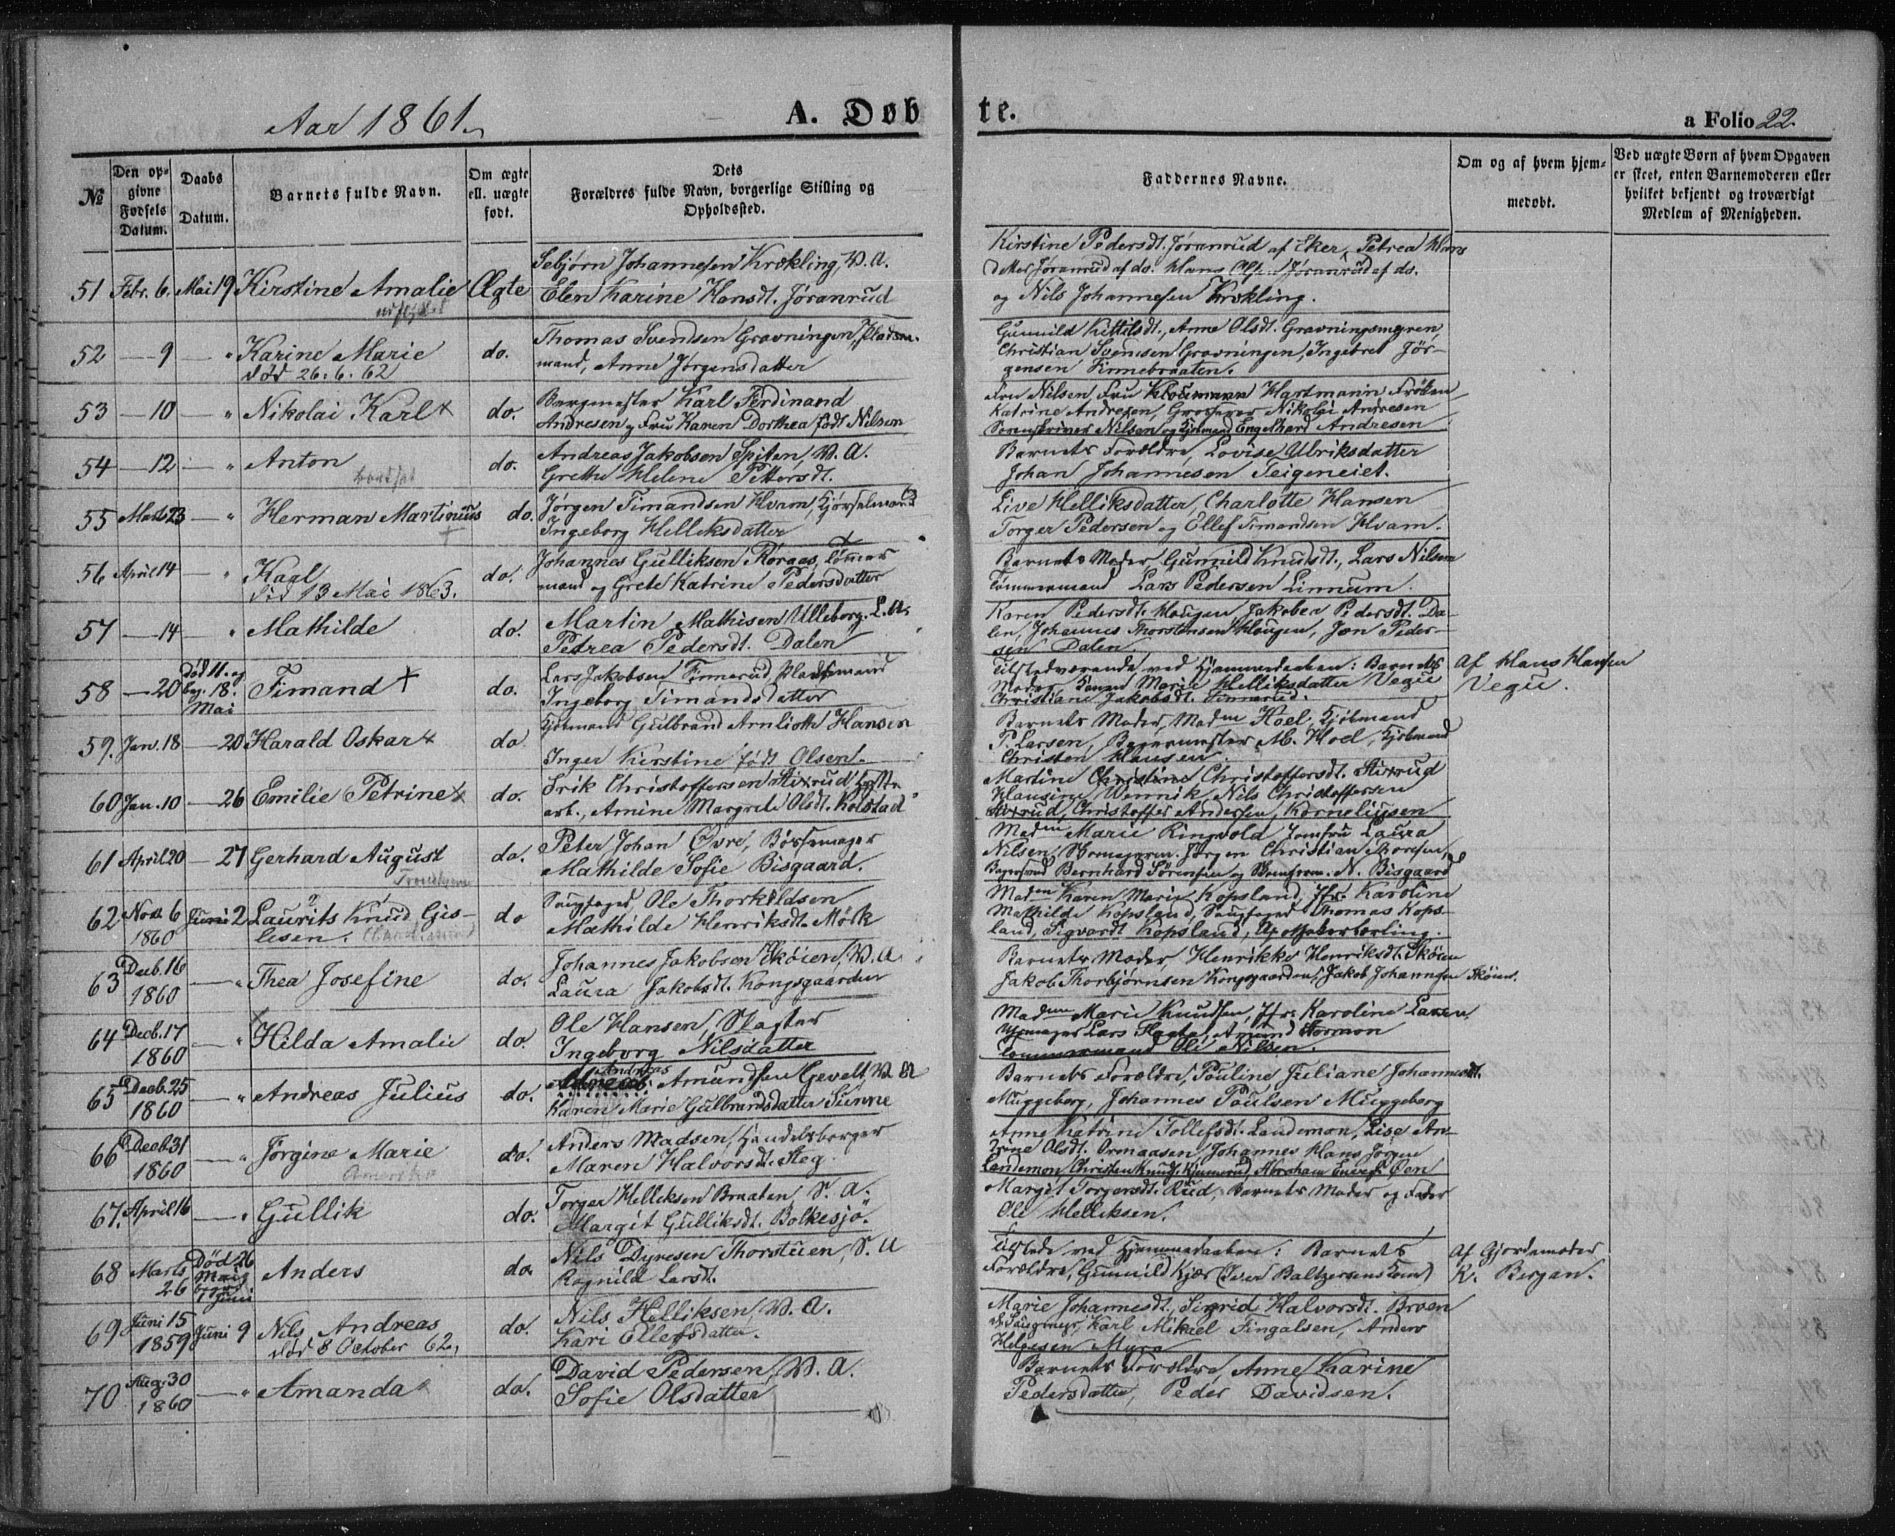 Aar 1861.
A. Døbte.
a Folio 22.
№
Den opgivne Fødsels Datum.
Daabs Datum.
Barnets fulde Navn.
Om ægte ell. uægte født.
Dets Forældres fulde Navn, borgerlige Stilling og Opholdssted.
Faddernes Navne.
Om og af hvem hjemmedøbt.
Ved uægte Børn af hvem Opgaven er skeet, enten Barnemoderen eller hvilket bekjendt og troværdigt Medlem af Menigheden.
51 Febr. 6. Mai 19 Kirstine Amalie Ægte
Sebjørn Johannesen Krekling, V. A.
Elen Karine Hansdt. Jøranrud
Kirstine Pedersdt. Jøranrud af Eker, Petrea Hans
datter Jøranrud af do. Hans Ols. Jøranrud af do.
og Nils Johannesen Krekling.
52 — 9 — " Karine Marie do.
død 26. 6. 62
Thomas Svendsen Gravningen, Pladsmand, Anne Jørgensdatter
Gunnild Kittilsdt., Anne Olsdt. Gravningsmyren,
Christian Svendsen Gravningen, Ingebret Jørgensen Finnebraaten.
53 — 10 — " Nikolai Karl + do.
Bergmester Karl Ferdinand
Andresen og Fru Karen Dorthea født Nilsen
Fru Nilsen, Fru Hartmann Frøken
Katrine Andresen, Grosserer Nikolai Andresen
Sorenskriver Nilsen og Kjøbmand Engelhard Andresen
54 — 12 — " Anton do.
bortsat
Andreas Jakobsen Spiten, V. A.
Grethe Helene Pettersdt.
Barnets Forældre, Lovise Ulriksdatter
Johan Johannesen Teigeneiet.
55 Marts 23 — " Herman Martinius do.
Jørgen Timandsen Hvam, Kjørselsmand
Ingeborg Helliksdatter
Live Helliksdatter, Charlotte Hansen
Torger Pedersen og Ellef Timandsen Hvam.
56 April 14 — " Karl do.
død 13 Mai 1863.
Johannes Gulliksen Tømmermand og Grete Katrine Pedersdatter
Barnets Moder, Gunnild Knudsdt., Lars Nilsen
Tømmermand Lars Pedersen Linnum.
57 — 14 — " Mathilde do.
Martin Mathisen Ulleborg. L. A.
Petrea Pedersdt. Dalen
Karen Pedersdt. Haugen Jakobea Pedersdt. Dalen, Johannes Thorstensen Haugen, Jon Pedersen Dalen.
58 — 20 Død 11. og beg. 18. Mai Timand + do.
Lars Jakobsen Finnerud, Pladsmand
Ingeborg Timandsdatter
Tilstedeværende ved Hjemmedaaben: Barnets
Moder, Konen Marie Helliksdatter Vegu
Christiane Jakobsdt. Finnerud.
Af Hans Hansen
Vegu.
59. Jan. 18 — 20 Harald Oskar + do
Kjøbmand Gulbrand Arnliotte Hansen
Inger Kirstine født Olsen.
Barnets Moder, Madm Hoel, Kjøbmand
P. Larsen, Bagermester M. Hoel, Kjøbmand
Christen Hansen.
60 Jan. 10 — 26 Emilie Petrine + do.
Erik Christoffersen Stixrud, Hyttearb., Amine Margrete Olsdt. Kolstad
Martine Christine Christoffersdt. Stixrud
Klausine Wennik, Nils Christoffersen
Stixrud, Christoffer Andersen, Korneliussen
61 April 20 — 27 Gerhard August do.
Peter Johan Øvre, Bøssemager
Mathilde Sofie Bisgaard.
Madm Marie Ringvold Jomfru Laura
Nilsen, Skomagersv. Jørgen Christian Boresen,
Bagersvend Bernhard Sørensen og N. Bisgaard
62 Novb 6 1860 Juni 2 Laurits Knud Gislesen. do
Saugfoged Ole Thorkildsen
Mathilde Henriksdt. Mørk
Madm Karen Marie Kopsland, Jfr. Karoline
Mathilde Kopsland, Saugfoged Thomas Kopsland, Sigvardt Kopsland, Apothekerlærling.
63 Decb. 16 1860 — " Thea Josefine do.
Johannes Jakobsen Skøien, V. A.
Laura Jakobsdt. Kongsgaarden
Barnets Moder, Henrikke Henriksdt. Skøien
Jakob Thorbjørnsen Kongsgaarden, Jakob Johannesen Skøien.
64 Decb. 17 1860 — " Hilda Amalie do.
Ole Hansen, Slagter
Ingeborg Nilsdatter
Madm Marie Knudsen, Jfr. Karoline Larsen
Tømmermand Ole Nilsen.
65 Decb. 25 1860 — " Andreas Julius do.
Andreas Amundsen Gevelt, V. A
Karen Marie Gulbrandsdatter Sunne
Barnets Forældre, Pauline Juliane Johannesdt.
Muggeborg, Johannes Paulsen Muggeborg
66 Decb. 31 1860 — " Jørgine Marie do.
Amerika
Anders Madsen, Handelsborger
Maren Halvorsdt. Steg
Anne Katrine Tollefsdt. Landemon, Lise Andrine Olsdt. Ormaasen, Johannes Hans Jørgen
Landemon, Christen Knuds. Kjennerud Abraham Øen
67. April 16 — " Gullik do.
Torger Helliksen Braaten, S. A.
Margit Gulliksdt. Bolkesjø.
Margit Torgersdt. Rud, Barnets Moder og Fader
Ole Helliksen.
68 Marts 26 Død 26 Mai begr. 1 Juni Anders do.
Nils Dyresen Thorstuen S. A
Ragnild Larsdt.
Tilstede ved Hjemmedaaben: Barnets
Forældre, Gunnild Kjær (Iver Baltzersens Kone)
Af Gjordemoder
K. Bergan.
69 Juni 15 1859 Juni 9 Nils Andreas do.
død 8 October 62.
Nils Helliksen, V. A.
Kari Ellefsdatter.
Marie Johannesdt., Sigrid Halvorsdt. Broen
Karl Mikael Fingalsen, Anders
Helgesen Myra
70 Aug. 30 1860 — " Amanda do.
David Pedersen, V. A.
Sofie Olsdatter
Barnets Forældre, Anne Karine
Pedersdatter, Peder Davidsen.